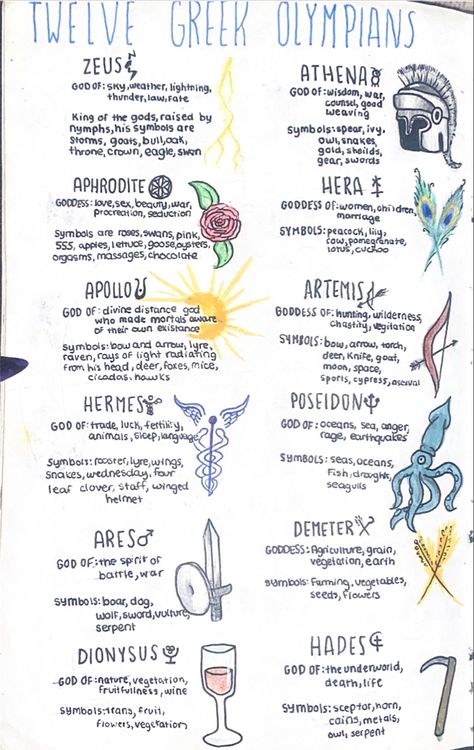 TWELVE GREEK OLYMPIANS
ZEUS
GOD OF: sky, weather, lightning,
thunder, law, fate
King of the gods, raised by
nymphs, his symbols are
storms, goats, bull, oak,
throne, crown, eagle, swan
ATHENA
GOD OF: wisdom, war,
counsel, good
weaving
Symbols: spear, ivy,
owl, snakes,
gold, sheilds,
gear, swords
APHRODITE
GODDESS: love, sex, beauty, war,
procreation, seduction
Symbols are roses, swans, pink,
555, apples, lettuce, goose, oysters,
orgasms, massages, chocolate
HERA
GODDESS OF: women, children,
marriage
SYMBOLS: peacock, lily,
cow, pomegranate,
lotus, cuckoo
APOLLO
GOD OF: divine distance god
who made mortals aware
of their own existance
Symbols: bow and arrow, lyre,
raven, rays of light radiating
from his head, deer, foxes, mice,
cicadas, hawks
ARTEMIS
GODDESS OF: hunting, wilderness,
chastity, vegitation
SYMBOLS: bow, arrow, torch,
deer, knife, goat,
moon, space,
sports, cypress,
HERMES
GOD OF: trade, luck, fertility,
animals, sleep, language
Symbols: rooster, lyre, wings,
snakes, wednesday, four
leaf clover, staff, winged
helmet
POSEIDON
GOD OF: oceans, sea, anger,
rage, earthquakes
SYMBOLS: seas, oceans,
Fish, draughts,
seagulls
ARES
GOD OF: the spirit of
battle, war
Symbols: boar, dog,
wolf, sword, vulture,
serpent
DEMETER
GODDESS: Agriculture, grain,
vegetation, earth
Symbols: Farming, vegetables,
seeds, flowers
DIONYSUS
GOD OF: nature, vegetation,
fruitfullness, wine
Symbols: trans, fruit,
flowers, vegetation
HADES
GOD OF: the underworld,
death, life
SYMBOLS: sceptor, horn,
cains, metals,
owl, serpent